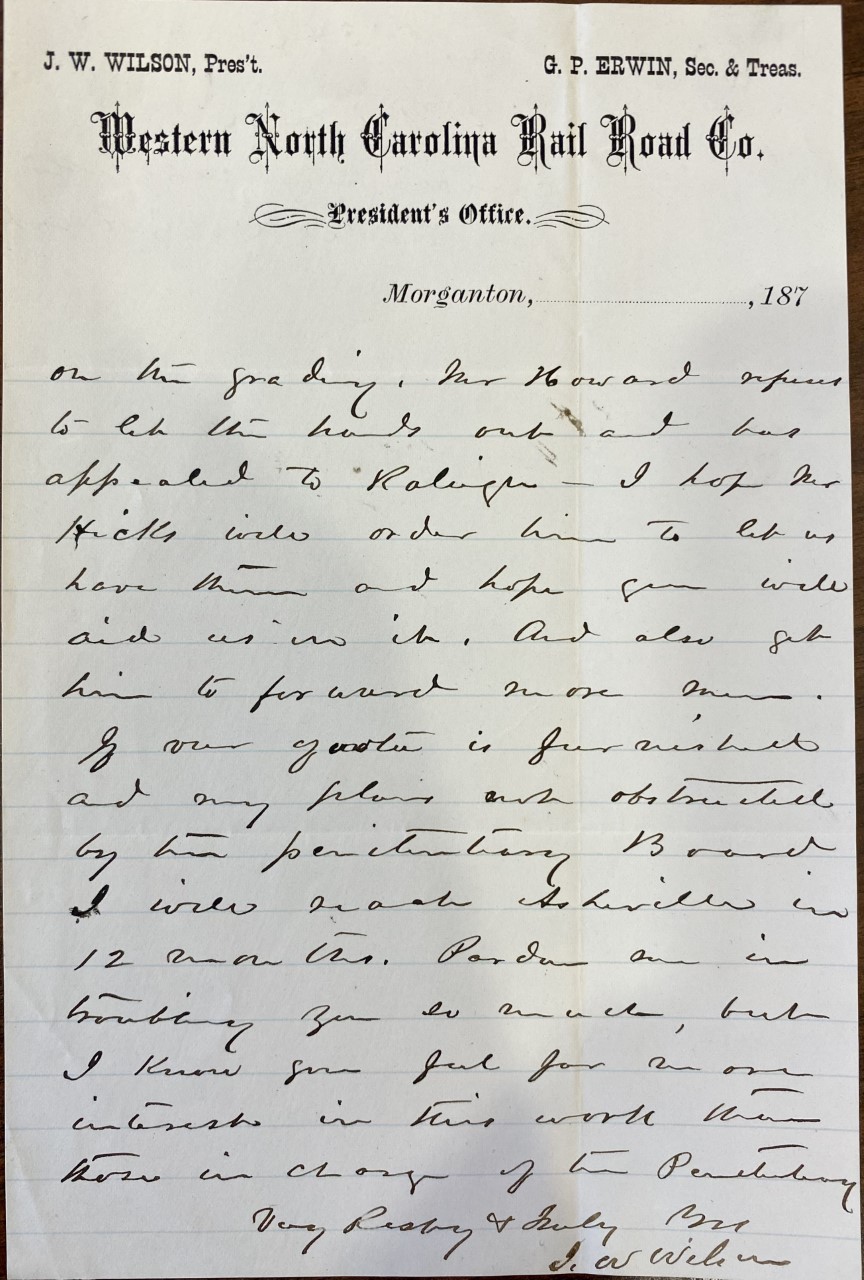 J. W. WILSON, Pres't.
G. P. ERWIN, Sec. & Treas.
Western North Carolina Rail Road Co.
President's Office.
Morganton, , 187
on the grading. Mr Howard refuses
to let the hands out and has
appealed to Raleigh – I hope Mr
Hicks will order him to let us
have them and hope you will
aid us in it. And also get
him to forward more men.
If our quota is furnished
and my plans not obstructed
by the penitentiary Board
I will reach Asheville in
12 months. Pardon me in
troubling you so much, but
I know you feel far more
interest in this work than
those in charge of the Penitentiary
Very Resply & Truly
J. W Wilson